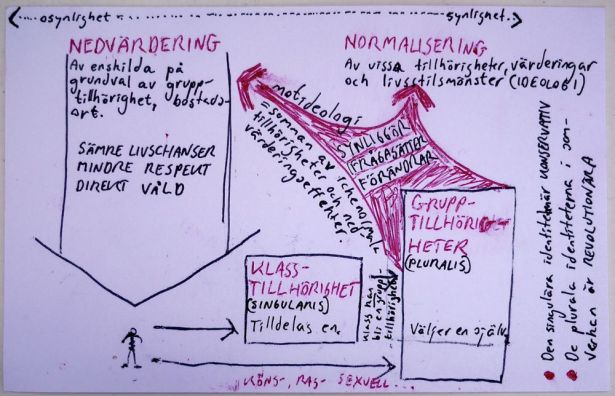 osynlighet
synlighet
NEDVÄRDERING
Av enskilda på
grundval av grupp-
tillhörighet, bostads-
ort.
SÄMRE LIVSCHANSER
MINDRE RESPEKT
DIREKT VÅLD
NORMALISERING
Av vissa tillhörigheter, värderingar
och livsstilsmönster (IDEOLOGI)
motideologi
= summan av icke normala
tillhörigheter och ned
värderingseffekter
SYNLIGGÖR
IFRÅGASÄTTER
FÖRÄNDRAR
GRUPP-
TILLHÖRIG-
HETER
(PLURALIS)
Väljer en själv
KLASS-
TILLHÖRIGHET
(SINGULARIS)
Tilldelas en.
Klass kan
bli en grupp
tillhörighet
KÖNS-, RAS- SEXUELL...
Den singulära identiteten är KONSERVATIV
De plurala identiteterna i sam-
verkan är REVOLUTIONÄRA